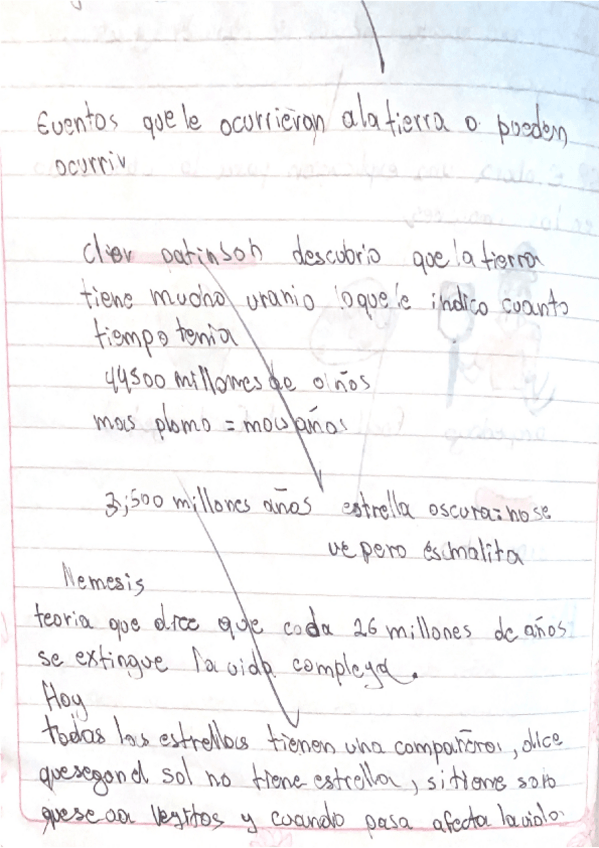 Eventos que le ocurrieron a la tierra o pueden
ocurrir
clier patinson descubrio que la tierra
tiene mucho uranio lo que le indico cuanto
tiempo tenia
44500 millones de años
mas plomo = mas años
3,500 millones años estrella oscura: no se
ve pero es malita
Nemesis
teoria que dice que cada 26 millones de años
se extingue la vida compleya.
Hoy
todas las estrellas tienen una compañera, dice
que segon el sol no tiene estrella, si tiene solo
que se va y cuando pasa afecta la vida